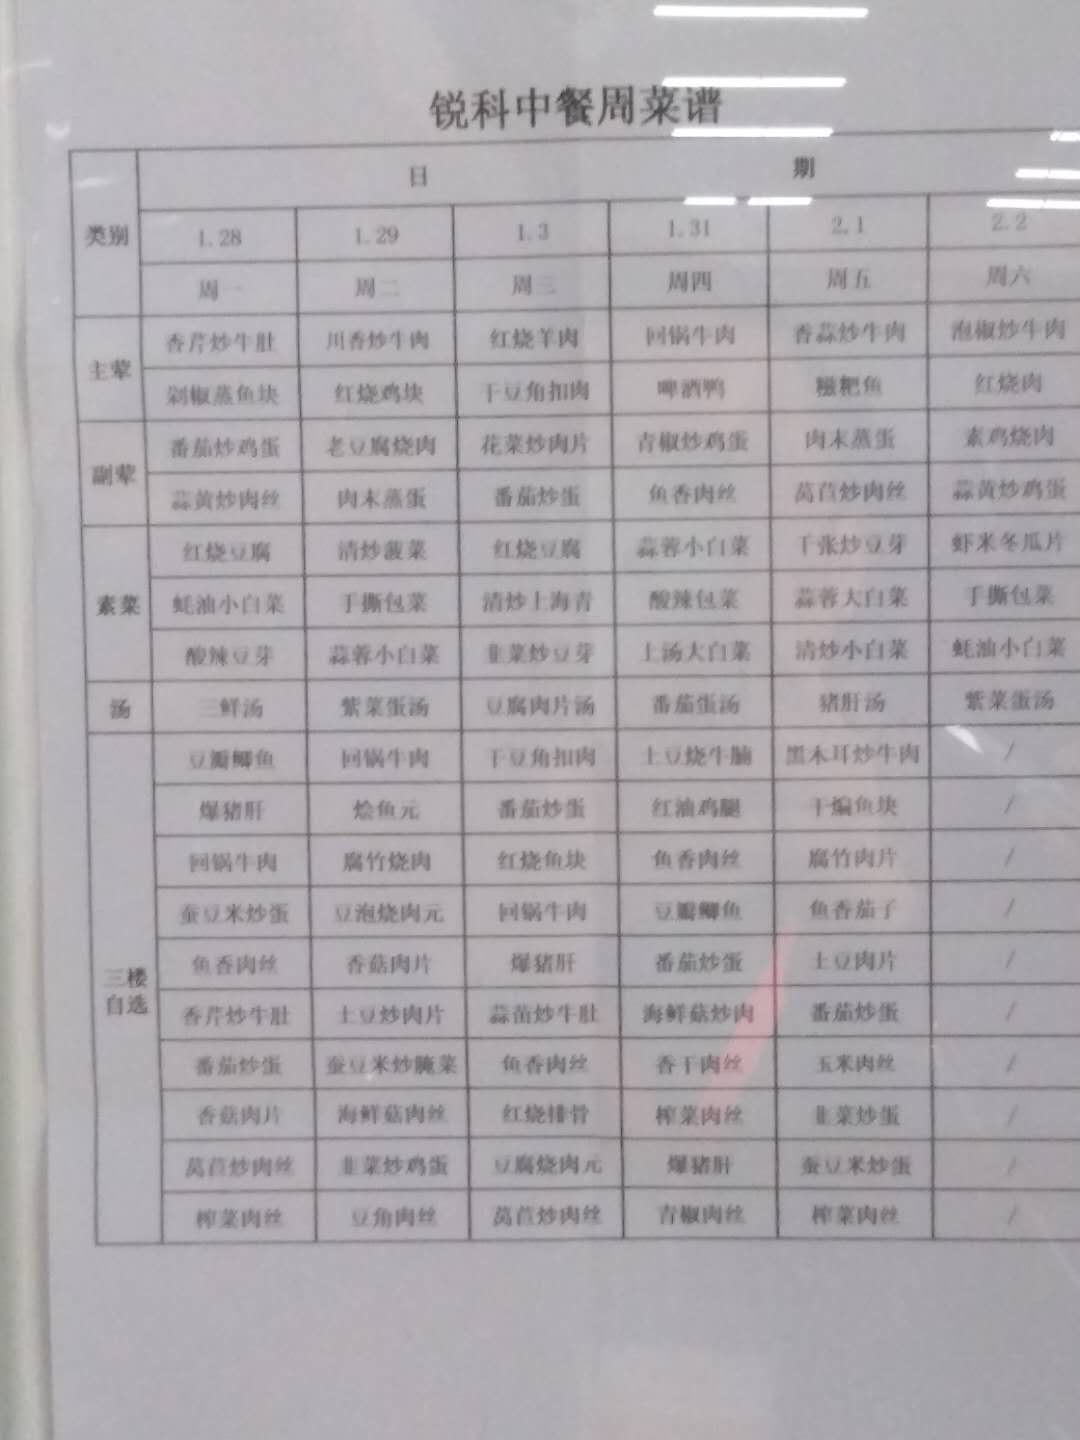 锐科中餐周菜谱
类别 日 期
1.28 1.29 1.3 1.31 2.1 2.2
周一 周二 周三 周四 周五 周六
主荤 香芹炒牛肚 川香炒牛肉 红烧羊肉 回锅牛肉 香蒜炒牛肉 泡椒炒牛肉
剁椒蒸鱼块 红烧鸡块 干豆角扣肉 啤酒鸭 糍粑鱼 红烧肉
副荤 番茄炒鸡蛋 老豆腐烧肉 花菜炒肉片 青椒炒鸡蛋 肉末蒸蛋 素鸡烧肉
蒜黄炒肉丝 肉末蒸蛋 番茄炒蛋 鱼香肉丝 莴苣炒肉丝 蒜黄炒鸡蛋
素菜 红烧豆腐 清炒菠菜 红烧豆腐 蒜蓉小白菜 千张炒豆芽 虾米冬瓜片
蚝油小白菜 手撕包菜 清炒上海青 酸辣包菜 蒜蓉大白菜 手撕包菜
酸辣豆芽 蒜蓉小白菜 韭菜炒豆芽 上汤大白菜 清炒小白菜 蚝油小白菜
汤 三鲜汤 紫菜蛋汤 豆腐肉片汤 番茄蛋汤 猪肝汤 紫菜蛋汤
三楼自选 豆瓣鲫鱼 回锅牛肉 干豆角扣肉 土豆烧牛腩 黑木耳炒牛肉 /
爆猪肝 烩鱼元 番茄炒蛋 红油鸡腿 干煸鱼块 /
回锅牛肉 腐竹烧肉 红烧鱼块 鱼香肉丝 腐竹肉片 /
蚕豆米炒蛋 豆泡烧肉元 回锅牛肉 豆瓣鲫鱼 鱼香茄子 /
鱼香肉丝 香菇肉片 爆猪肝 番茄炒蛋 土豆肉片 /
香芹炒牛肚 土豆炒肉片 蒜苗炒牛肚 海鲜菇炒肉 番茄炒蛋 /
番茄炒蛋 蚕豆米炒腌菜 鱼香肉丝 香干肉丝 玉米肉丝 /
香菇肉片 海鲜菇肉丝 红烧排骨 榨菜肉丝 韭菜炒蛋 /
莴苣炒肉丝 韭菜炒鸡蛋 豆腐烧肉元 爆猪肝 蚕豆米炒蛋 /
榨菜肉丝 豆角肉丝 莴苣炒肉丝 青椒肉丝 榨菜肉丝 /